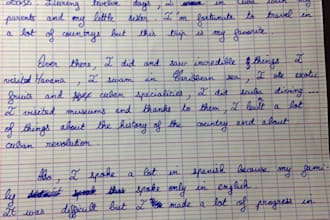 2023. During twelve days, I was in Cuba with my
parents and my little sister. I'm fortunate to travel in
a lot of countrys but this trip is my favorite.
Over there, I did and saw incredible things. I
visited Havana, I swam in Caribbean sea, I ate exotic
fruits and cuban specialities, I did scuba diving ...
I visited museums and thanks to them I built a lot
of things about the history of the country and about
cuban revolution
Also, I spoke a lot in spanish because my fami-
ly spoke only in english.
It was difficult but I made a lot of progress in